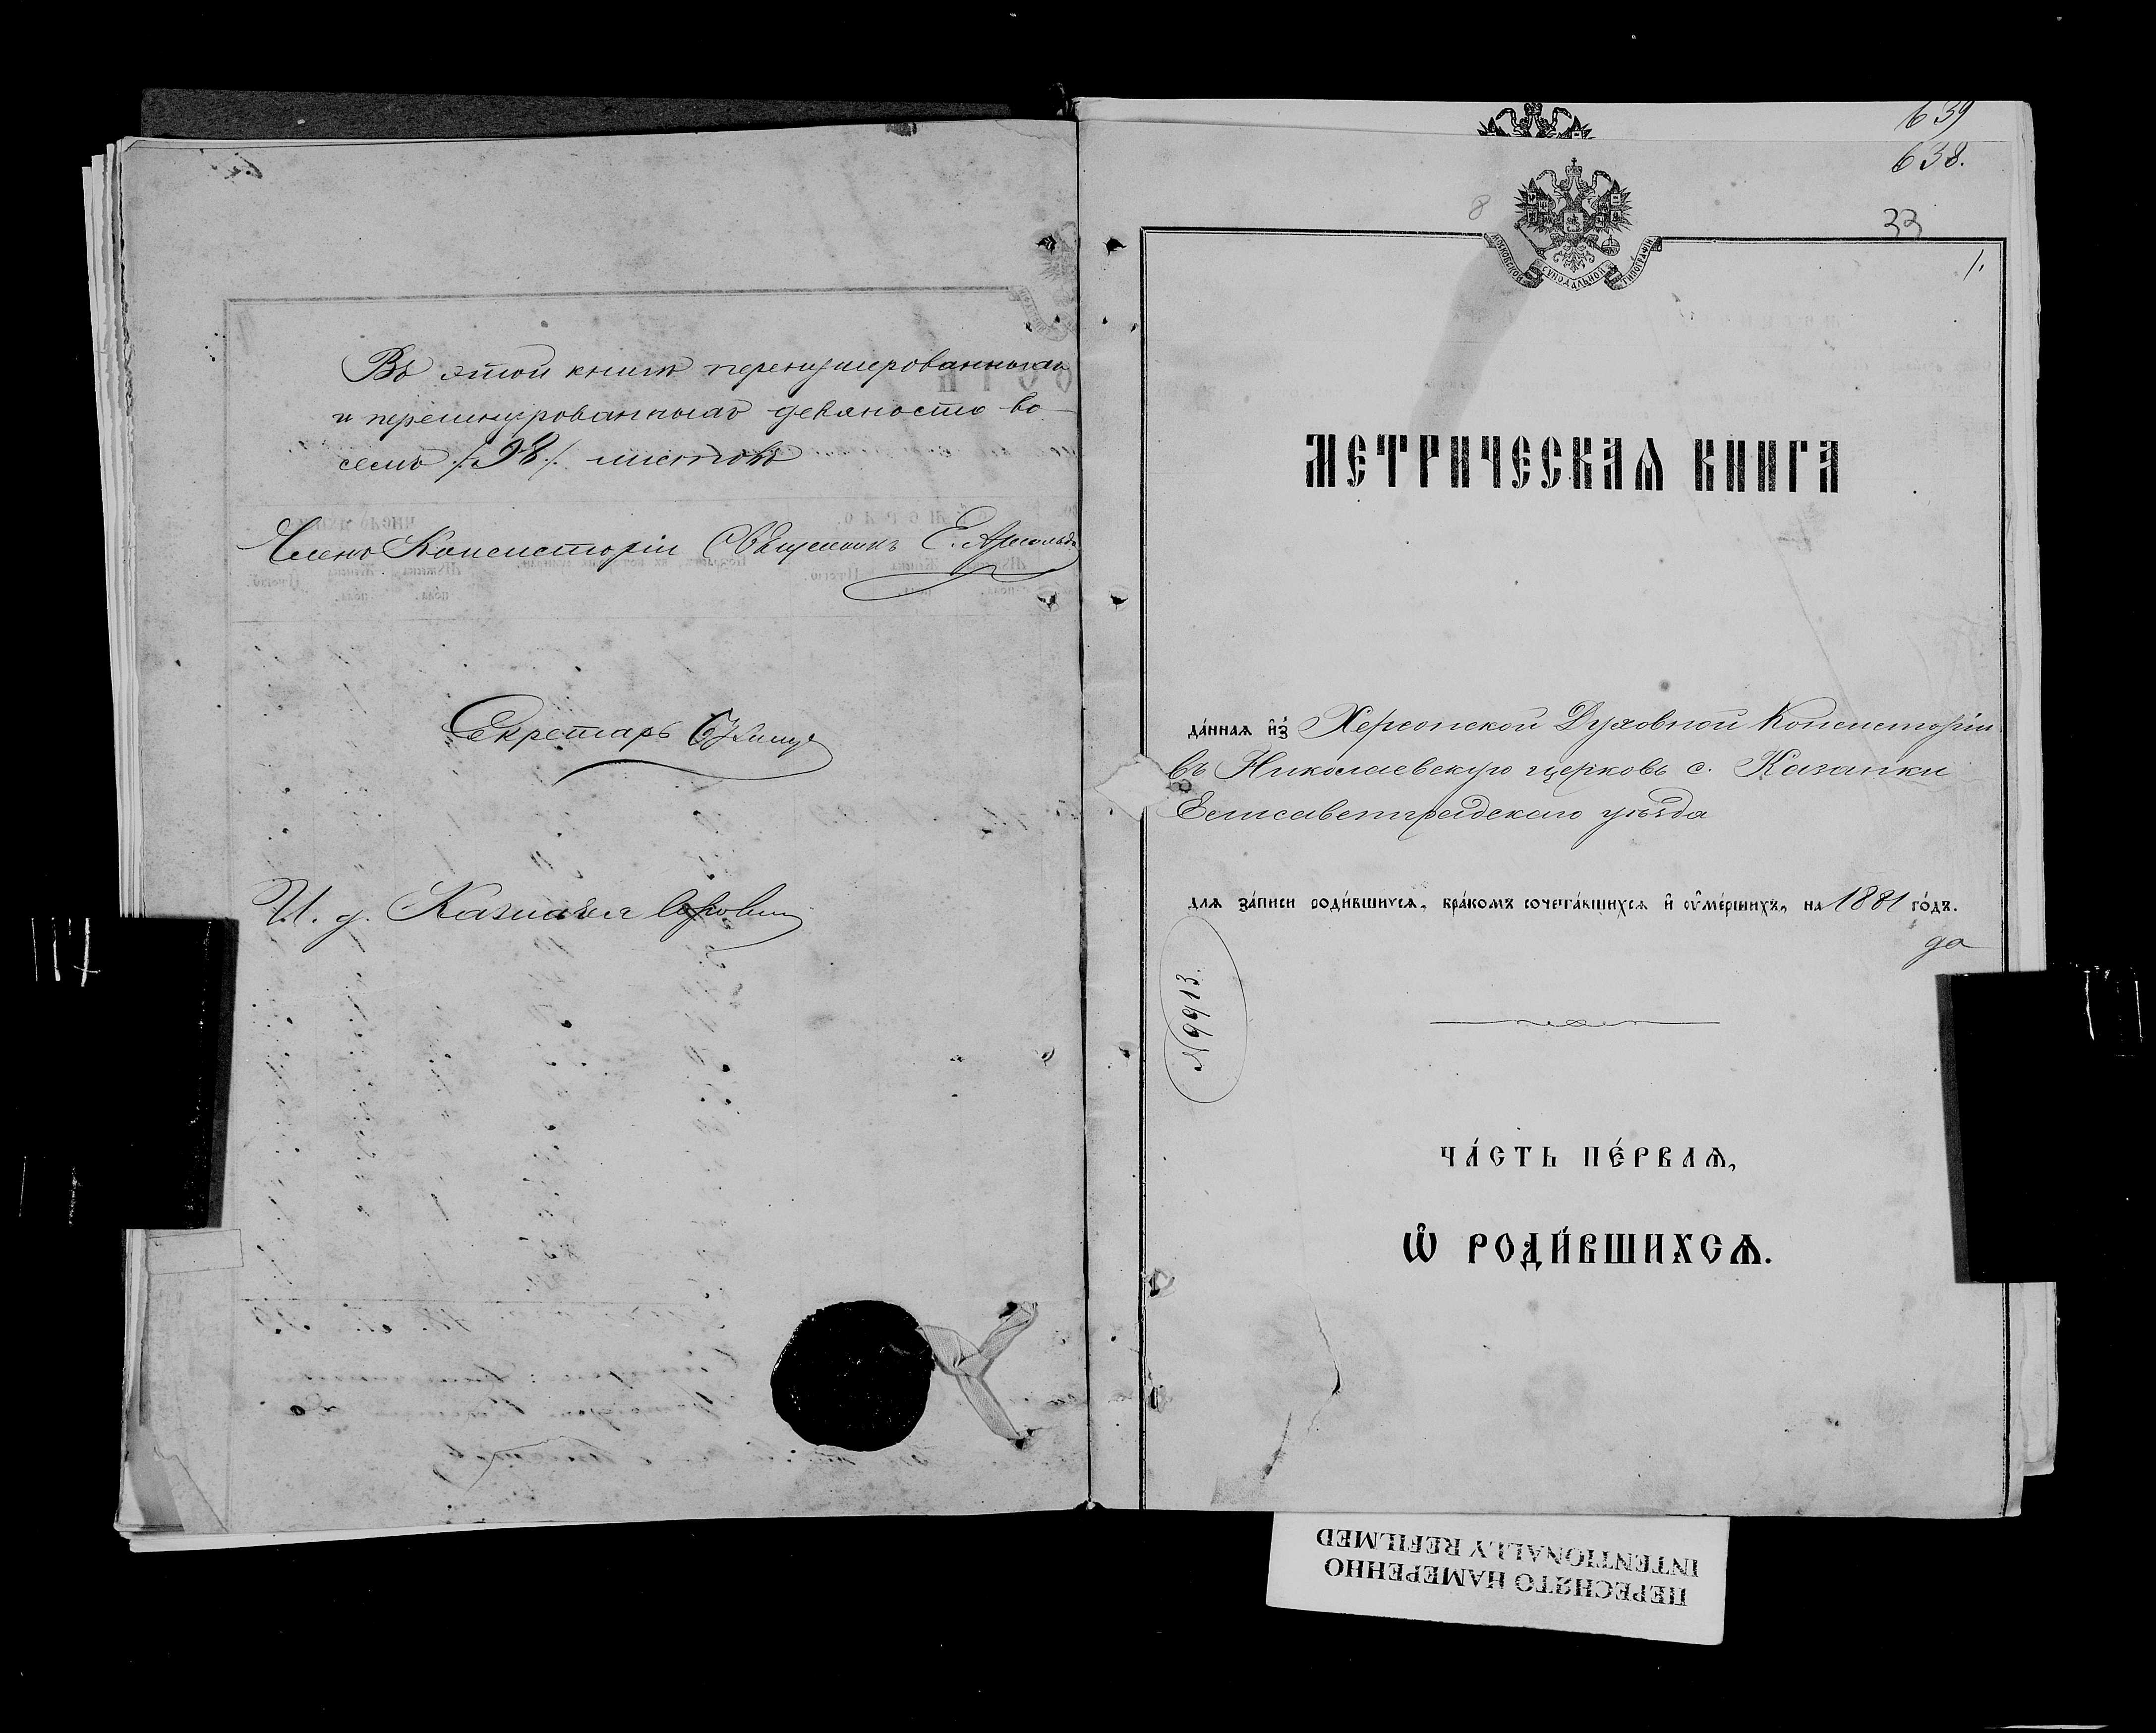 Въ этой книгѣ перенумерованныхъ
и перешнурованныхъ девяносто во-
семь /98/. листовъ
Членъ Консисторіи Священникъ Е.
Секретарь
И. д. Казначея
639
638.
8
33
1.
МОСКОВСКОЙ СѴНОДАЛЬНОЙ ТИПОГРАФІИ
МЕТРИЧЕСКАѦ КНИГА
да́ннаѧ и҆з̾ Херсонской Духовной Консисторіи
въ Николаевскую церковь с. Казанки
Елисаветградскаго уѣзда
длѧ за́писи роди́вшихсѧ, бра́комъ сочета́вшихсѧ и҆ ᲂу҆ме́ршихъ, на 1881 го́дъ.
да
№ 9913.
ЧА́СТЬ ПЕ́РВАѦ,
Ѽ РОДИ́ВШИХСѦ.
ПЕРЕСНЯТО НАМЕРЕННО
INTENTIONALLY REFILMED